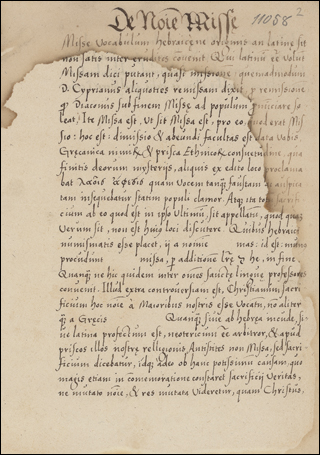 De Noīe Misse
11058 2
Misse Vocabulum hebraicę ne originis an latinę sit
non satis inter eruditos convenit. Qui latinum eē volūt
Missam dici putant, quasi missionē quemadmodum
D. Cyprianus aliquoties remissam dixit p remissione
q Diaconus sub finem Misse ad populum
leat: Ite Missa est. Ut sit Missa est, pro eo quod erat Mis
sio: hoc est: dimissio & abeundi facultas est data vobis,
Gręcanica nimirū & prisca Ethnicorū consuetudine, qua
finitis deorum mysterijs, aliquis ex edito loco proclama
bat quam vocem tanq faustam
tam insequebatur statim populi clamor. Atq ita
cium ab eo quod est in ipō Ultimū, sit appellatū, quod
Verum sit, non est huiq loci discutere Quibus hebraicū
esse placet, ij a nomine mas: id est:
missa, p additionē lrę he, in fine.
Quanq ne hij quidem inter omēs suaucę linguę professores
convenit. Illud extra controversiam est, Christianum sacri
ficium hoc noīe à Maioribus nostris esse Vocatū, nō aliter
q à Gręcis Quanq sive ab hebręa
ve latina profectum est, neotericum eē arbitror, & apud
priscos illos nostrę relligionis Antistites non Missa, sed sacri
ficium dicebatur, idq adeo ob hanc potissimū causam, quo
magis etiam in cōmemoratione constaret sacrificij veritas,
ne mutato noīe, & res mutata videretur, quam Christus,